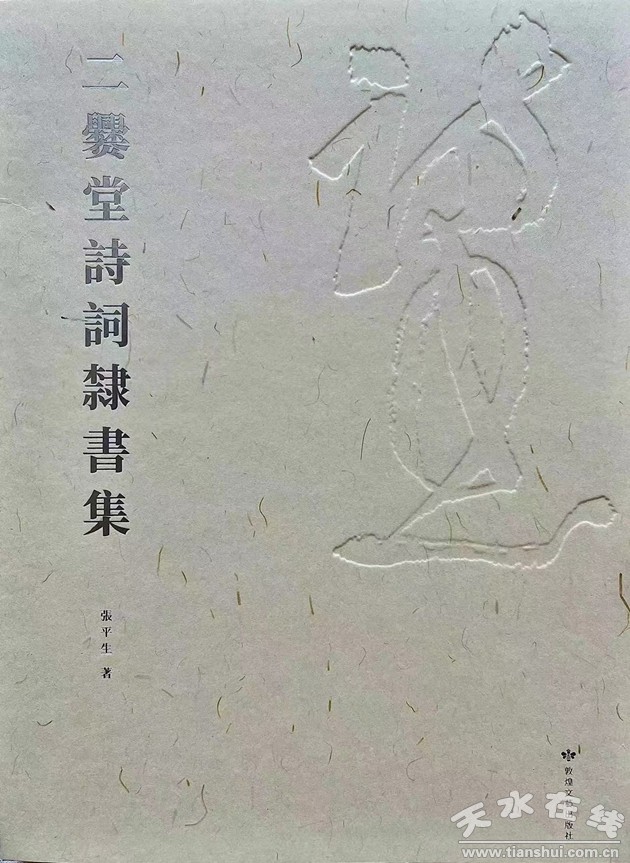 二爨堂詩詞隸書集
張平生 著
敦煌文艺出版社
天水在线
www.tianshui.com.cn